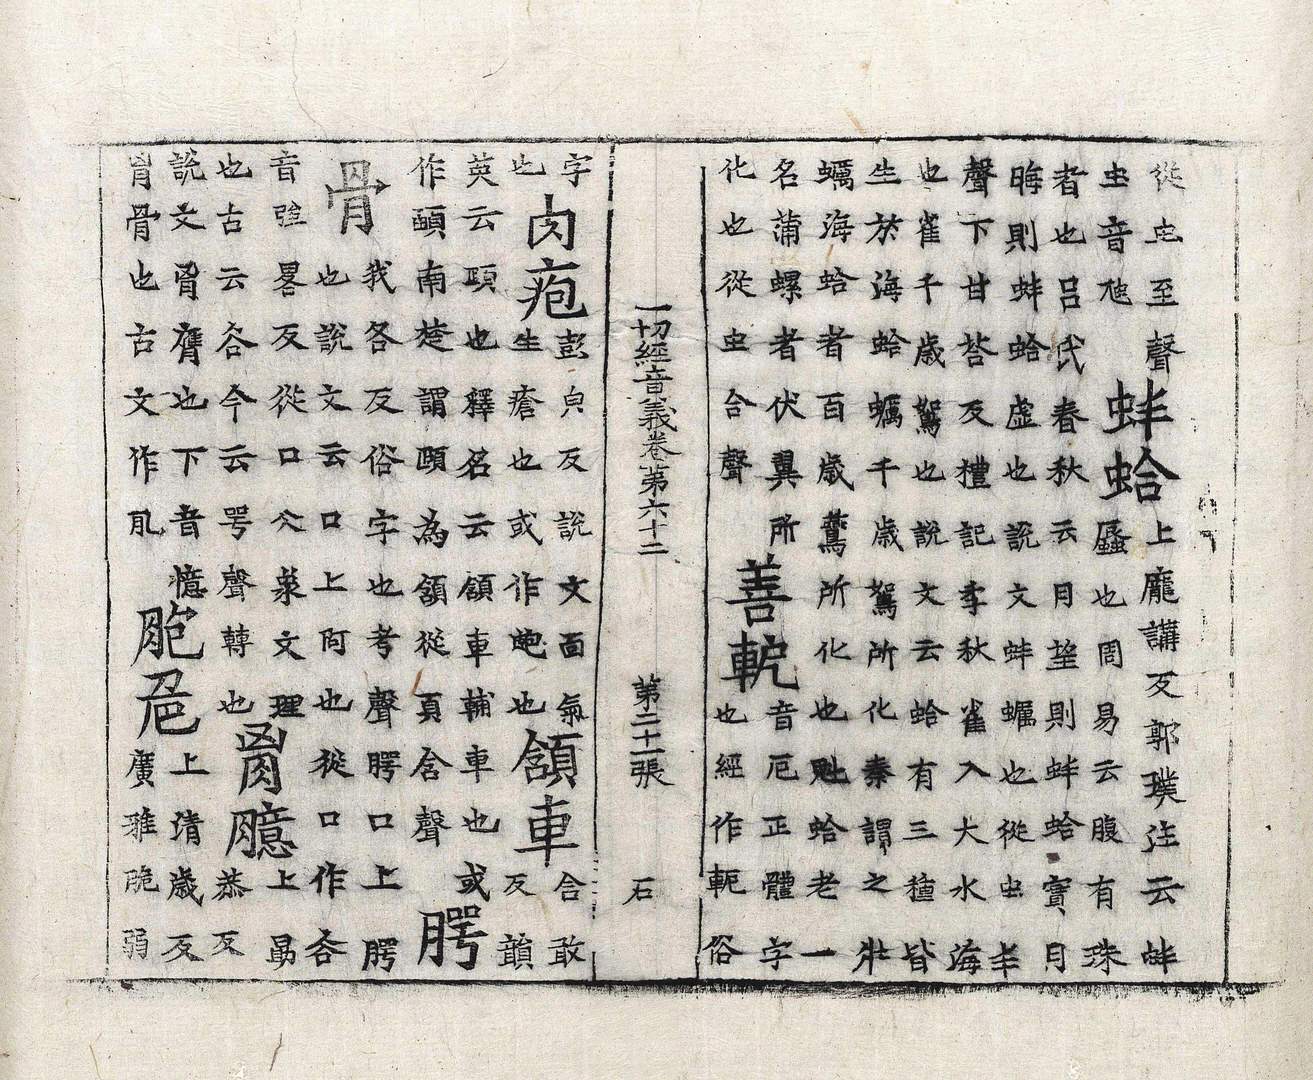 從虫至聲
虫音虺
蚌蛤
上龐講反郭璞注云蚌
蜃也周易云腹有珠
者也呂氏春秋云月望則蚌蛤實月
晦則蚌蛤虛也說文蚌蠣也從虫半
聲下甘荅反禮記季秋雀入大水海
也雀千歲鴽也說文云蛤有三種皆
生於海蛤蠣千歲鴽所化秦謂之牡
蠣海蛤者百歲鷰所化也魁蛤老一
名蒲螺者伏翼所
化也從虫合聲
善軶
音厄正體字
也經作軛俗
一切經音義卷第六十二 第二十一張 石
字
也
肉疱
彭皃反說文面氣
生瘡也或作皰也
頷車
含敢
反韻
英云頤也釋名云頷車輔車也或
作頤南楚謂頤為頷從頁含聲
腭
骨
我各反俗字也考聲腭口上腭
也說文云口上阿也從口作㕁
音強畧反從口仌象文理
也古云㕁今云咢聲轉也
胷臆
上勗
恭反
說文胷膺也下音憶
肯骨也古文作肊
脃危
上清歲反
廣雅脆弱